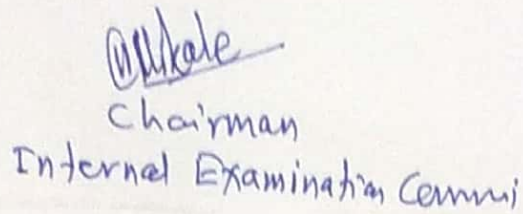 Chairman
Internal Examination Commi